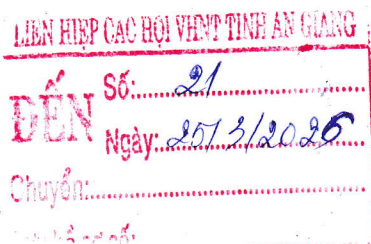 LIÊN HIỆP CÁC HỘI VHNT TỈNH AN GIANG
ĐẾN
Số: 21
Ngày: 25/3/2026
Chuyển: